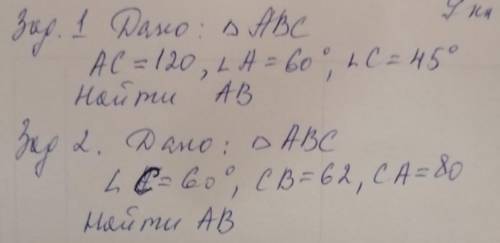 Зад. 1 Дано: △ABC
AC = 120, ∠A = 60°, ∠C = 45°
Найти AB
Зад 2. Дано: △ABC
∠C = 60°, CB = 62, CA = 80
Найти AB